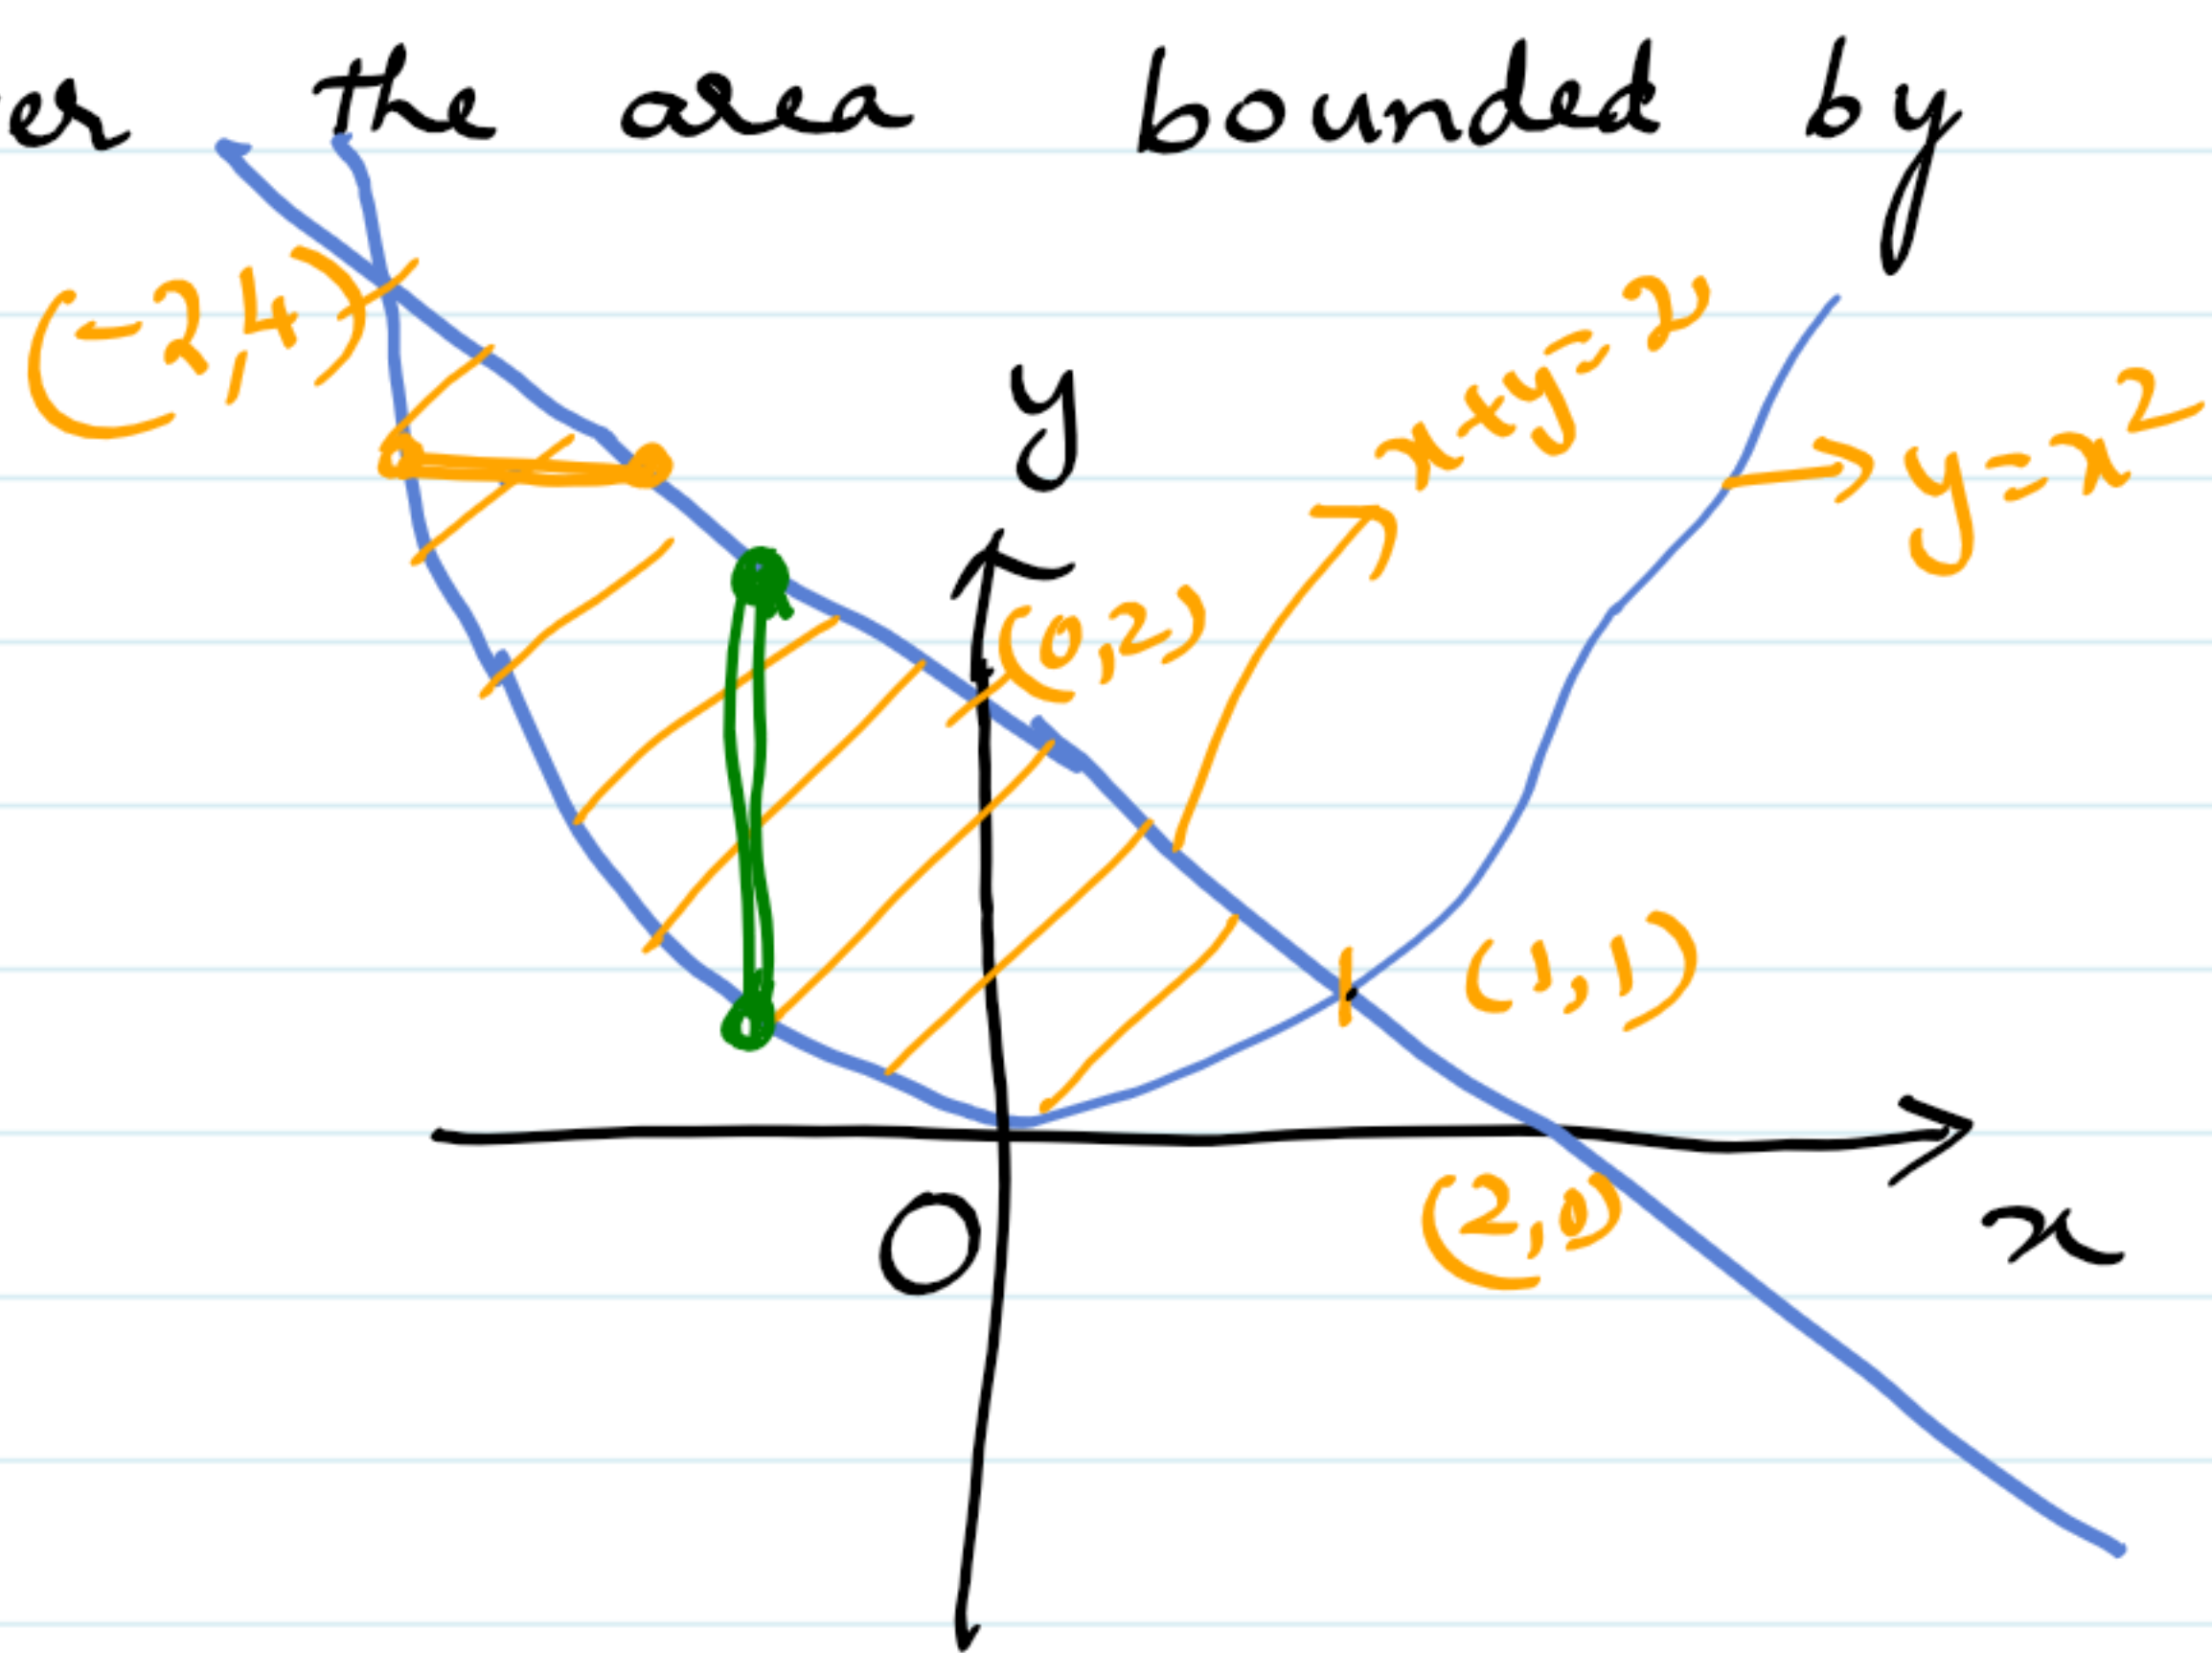 er the area bounded by
(-2,4)
y
x+y=2
y=x²
(0,2)
(1,1)
O
(2,0)
x